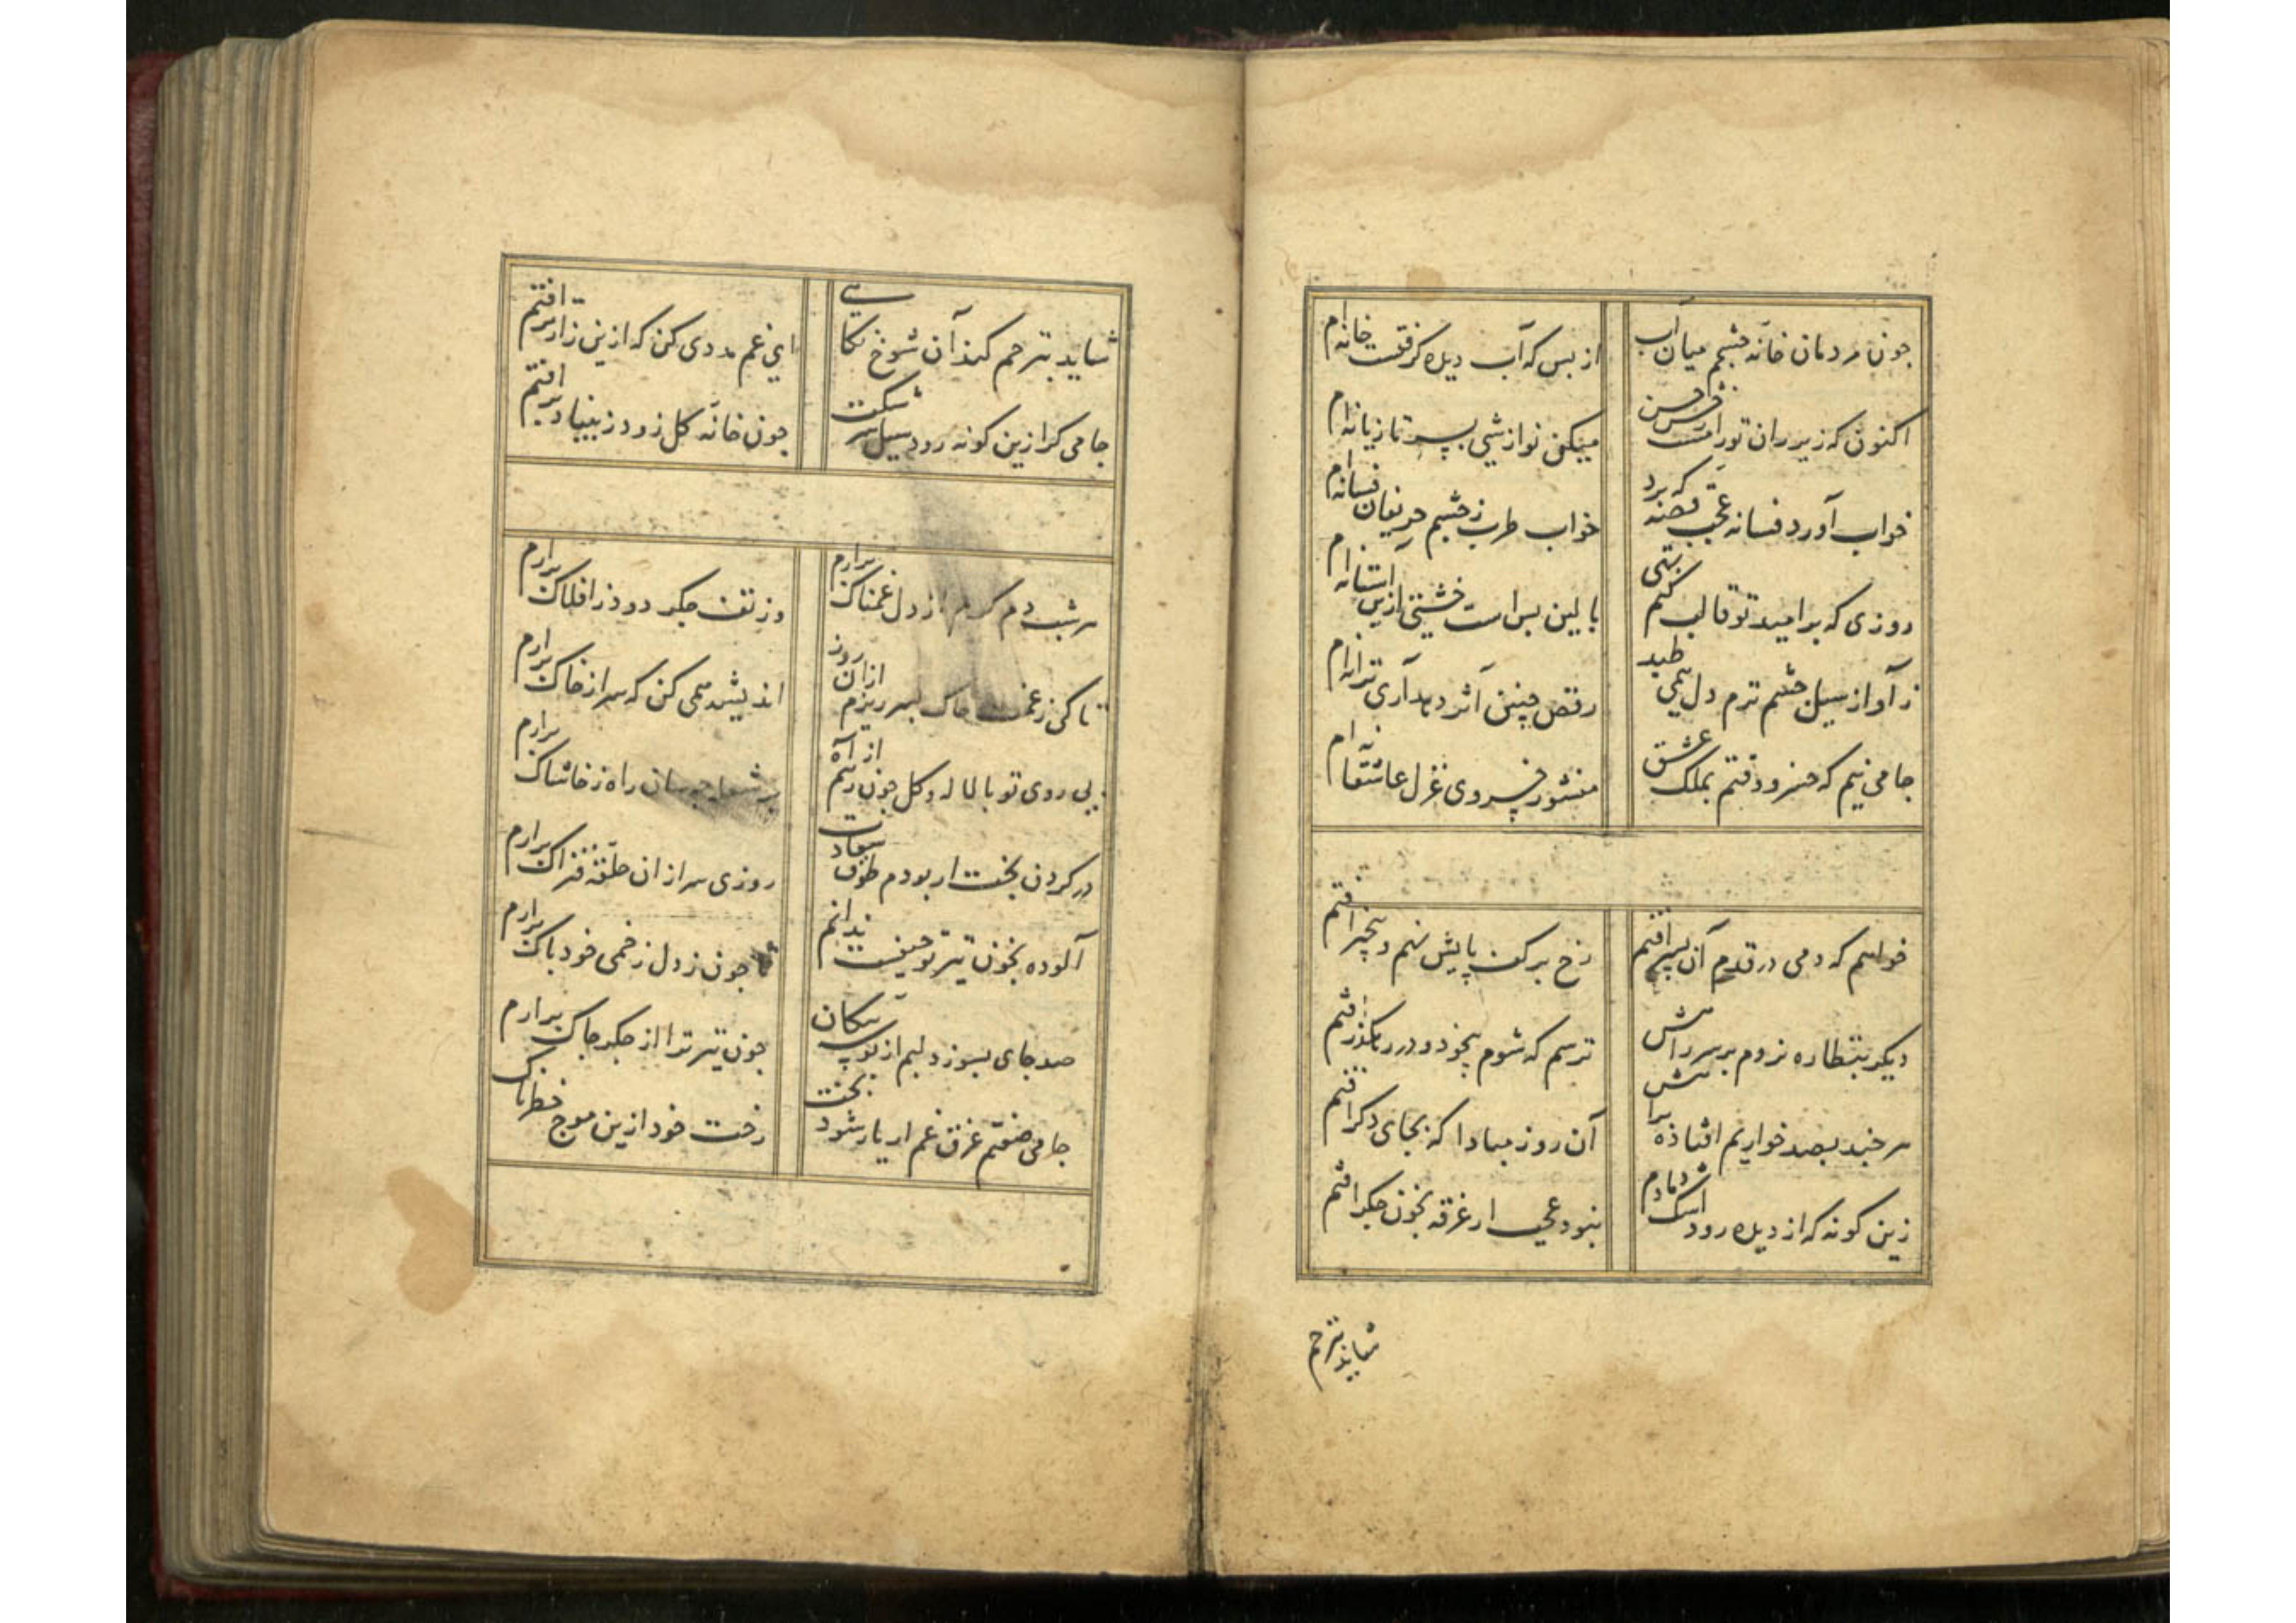 چون مردمان خانه چشمم میان آب
از بس که آب دیده گرفتست خانه ام
اکنون که زیر ران تو رامست رخش حسن
میکن نوازشی بسر تازیانه ام
خواب آورد فسانه عجب قصه که برد
خواب طرب ز چشم حریفان فسانه ام
روزی که بر امید تو قالب کنم تهی
بالین بس است خشتی ازین آستانه ام
ز آواز سیل چشم ترم دل همی طپد
رقص چنین اثر دهد آری ترانه ام
جامی نیم که خسرو وقتم بملک عشق
منشور خسروی غزل عاشقانه ام
خواهم که دمی در قدم آن پسر افتم
رخ بر کف پایش نهم و بیخبر افتم
دیگر بنظاره نروم بر سر راهش
ترسم که شوم بیخود و در رهگذر افتم
هر چند بصد خواریم افتاده براهش
آن روز مبادا که بجای دگر افتم
زین گونه که از دیده رود اشک دمادم
نبود عجب ار غرقه بخون جگر افتم
شاید بترحم
شاید بترحم کند آن شوخ نگاهی
ای غم مددی کن که ازین زارتر افتم
جامی گر ازین گونه رود سیل سرشکت
چون خانه گل زود ز بنیاد بر افتم
هر شب دم گرم از دل غمناک برارم
وز تف جگر دود ز افلاک برارم
تا کی ز غمت خاک بسر ریزم ازان روز
اندیشه همی کن که سر از خاک برارم
بی روی تو با لاله و گل چون رسم از آه
راه ز خاشاک برارم
در گردن بخت ار بودم طوق سعادت
روزی سر ازان حلقه فتراک برارم
آلوده بخون تیر تو حیفست ندانم
چون ز دل زخمی خود پاک برارم
صد جای بسوزد لبم از بوسه پیکان
چون تیر ترا از جگر چاک برارم
جامی صفتم غرق غم ار یار شود بخت
رخت خود ازین موج خطرناک